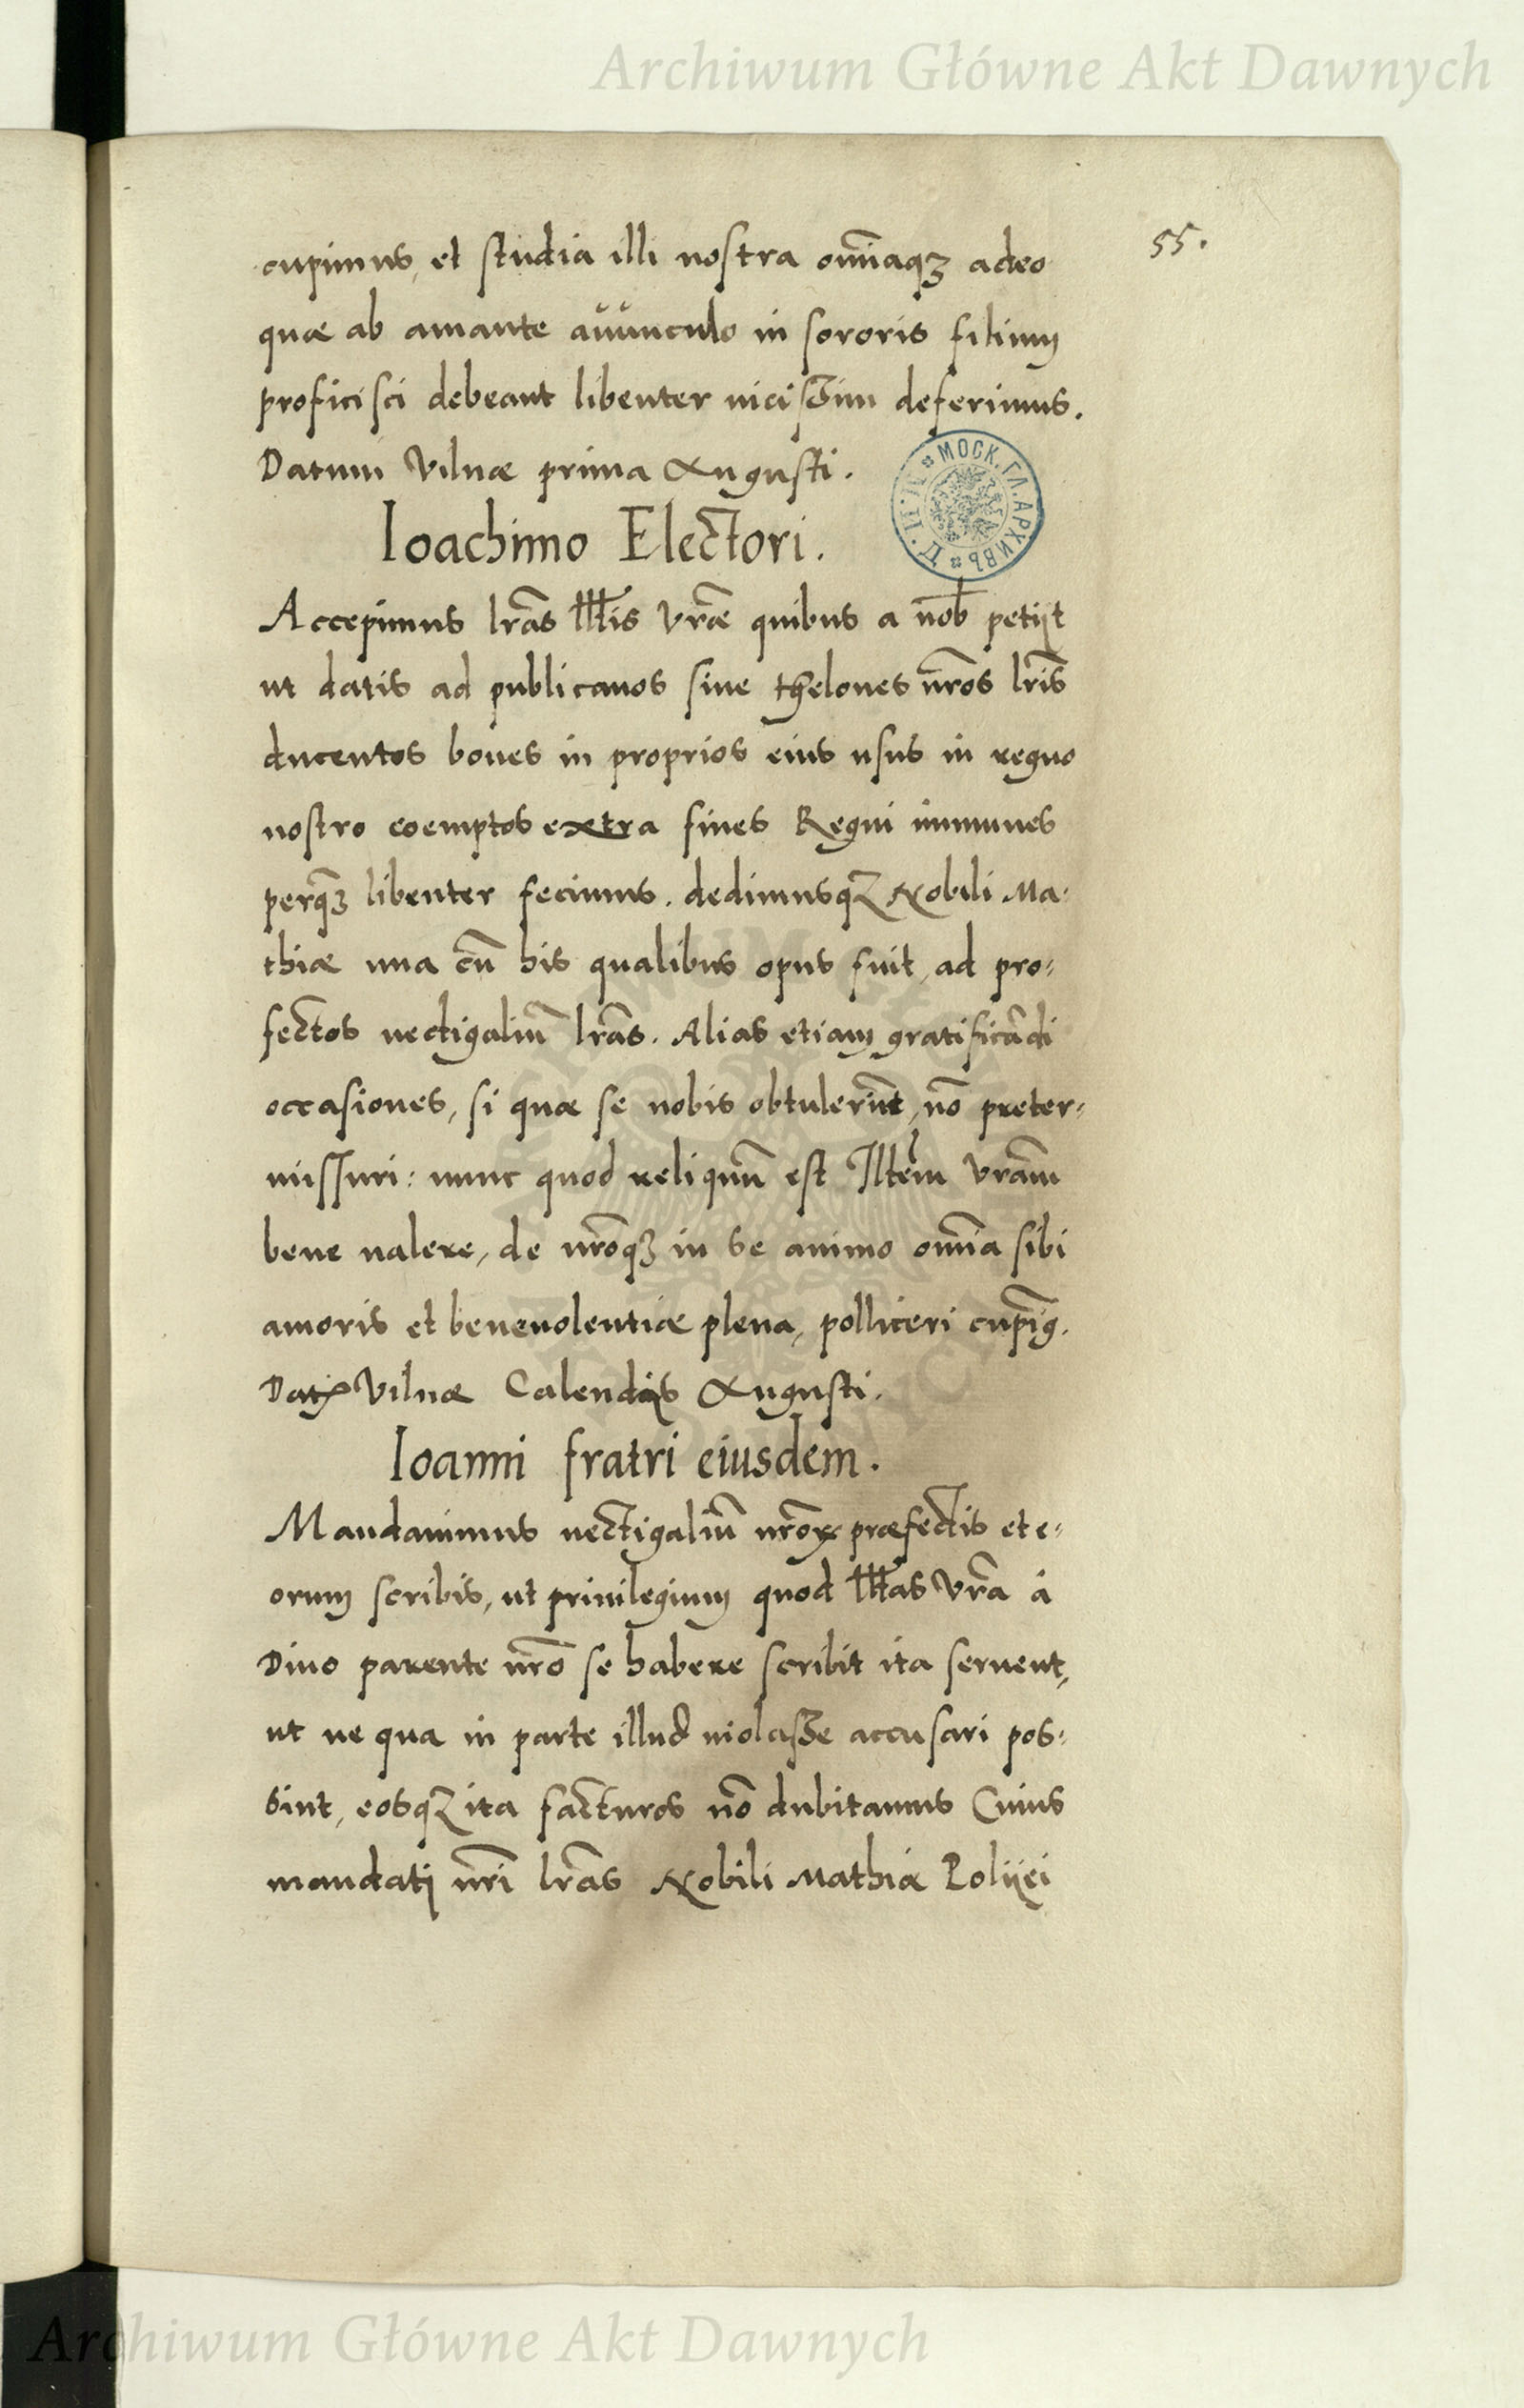 Archiwum Główne Akt Dawnych
55.
cupimus, et studia illi nostra om̃iaqȝ adeo
quæ ab amante aŭŭnculo in sororis filium
proficisci debeant libenter uicissim deferimus.
Datum Vilnæ prima Augusti.
МОСК. ГЛ. АРХИВЪ
Ioachimo Electori.
Accepimus lr̃as Illtis Vr̃æ quibus a nob̃ petijt
ut datis ad publicanos siue thelones nr̃os lr̃is
ducentos boues in proprios eius usus in regno
nostro coemptos extra fines Regni immunes
perq̃ȝ libenter fecimus. dedimusqȝ Nobili Ma-
thiæ una cũ his qualibus opus fuit, ad pro-
fectos uectigaliũ lr̃as. Alias etiam gratificãdi
occasiones, si quæ se nobis obtulerint, nõ preter-
missuri: nunc quod reliquũ est Illtem̃ Vr̃am
bene ualere, de nr̃oqȝ in se animo om̃ia sibi
amoris et beneuolentiæ plena, polliceri cupim̃9.
Datum Vilnæ Calendis Augusti.
Ioanni fratri eiusdem.
Mandauimus uectigaliũ nr̃oꝝ præfectis et e-
orum scribis, ut priuilegium quod Illtas Vr̃a à
Diuo parente nr̃o se habere scribit ita seruent,
ut ne qua in parte illud uiolasse accusari pos-
sint, eosqȝ ita facturos nõ dubitamus Cuius
mandati nr̃i lr̃as Nobili Mathiæ Polijei
Archiwum Główne Akt Dawnych